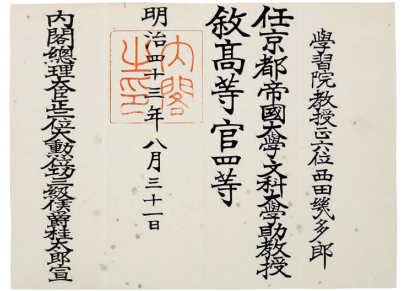 學習院教授正六位西田幾多郎
任京都帝國大學文科大學助教授
敘高等官四等
明治四十三年八月三十一日
內閣之印
內閣總理大臣正二位大勳位功三級侯爵桂太郎宣